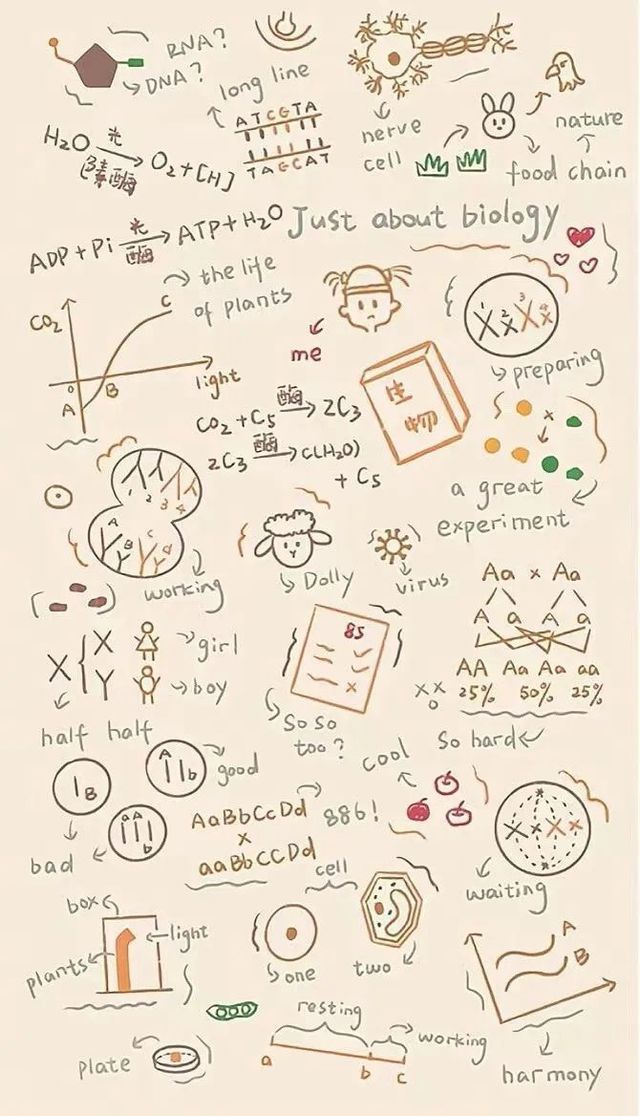 RNA?
DNA?
long line
ATCGTA
TAGCAT
nerve
cell
nature
food chain
H₂O 光 → O₂+[H]
ADP+Pi 光 酶 → ATP+H₂O
Just about biology
CO₂
C
the life
of plants
O
B
A
light
me
1 2 3 4
preparing
CO₂+C₅ 酶 → 2C₃
2C₃ 酶 → C(H₂O)
+ C₅
生
物
×
a great
experiment
1 2 3 4
A B C d
working
Dolly
virus
Aa × Aa
A a A a
AA Aa Aa aa
25% 50% 25%
X
X
Y
girl
boy
half half
85
So so
too?
So hard
cool
B
A
b
good
aA
b
bad
AaBbCcDd
×
aaBbCCDd
886!
waiting
cell
box
light
plants
one
two
A
B
harmony
resting
working
a
b
c
plate